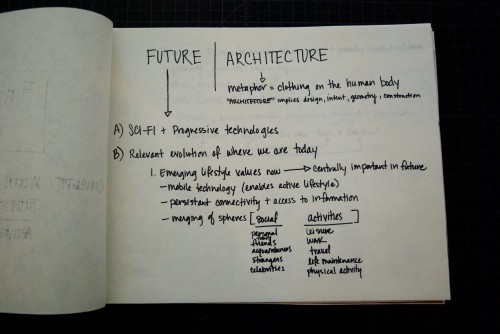 FUTURE | ARCHITECTURE
metaphor = clothing on the human body
"ARCHITECTURE" implies design, intent, geometry, construction
A) SCI-FI + Progressive technologies
B) Relevant evolution of where we are today
1. Emerging lifestyle values now → centrally important in future
- mobile technology (enables active lifestyle)
- persistant connectivity + access to information
- merging of spheres [social activities]
personal leisure
friends work
acquaintances travel
strangers life maintenance
celebrities physical activity